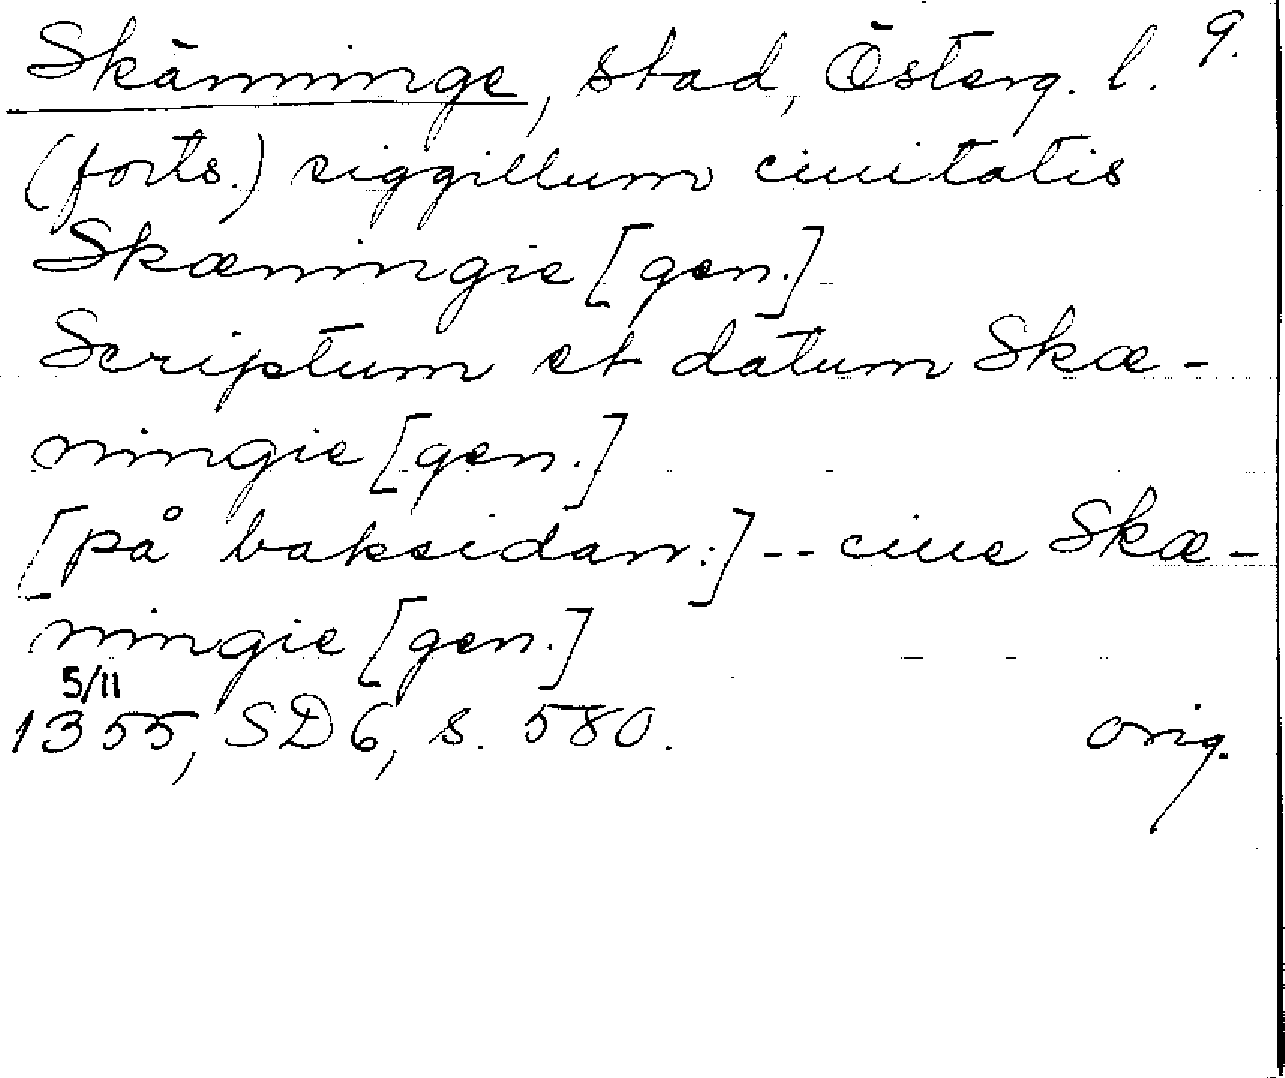 Skänninge, stad, Österg. l. 9.
(forts.) siggillum ciuitatis
Skæningie [gen.]
Scriptum et datum Skæ-
ningie [gen.]
[på baksidan:] -- ciue Skæ-
ningie [gen.]
5/11
1355, SD 6, s. 580. orig.